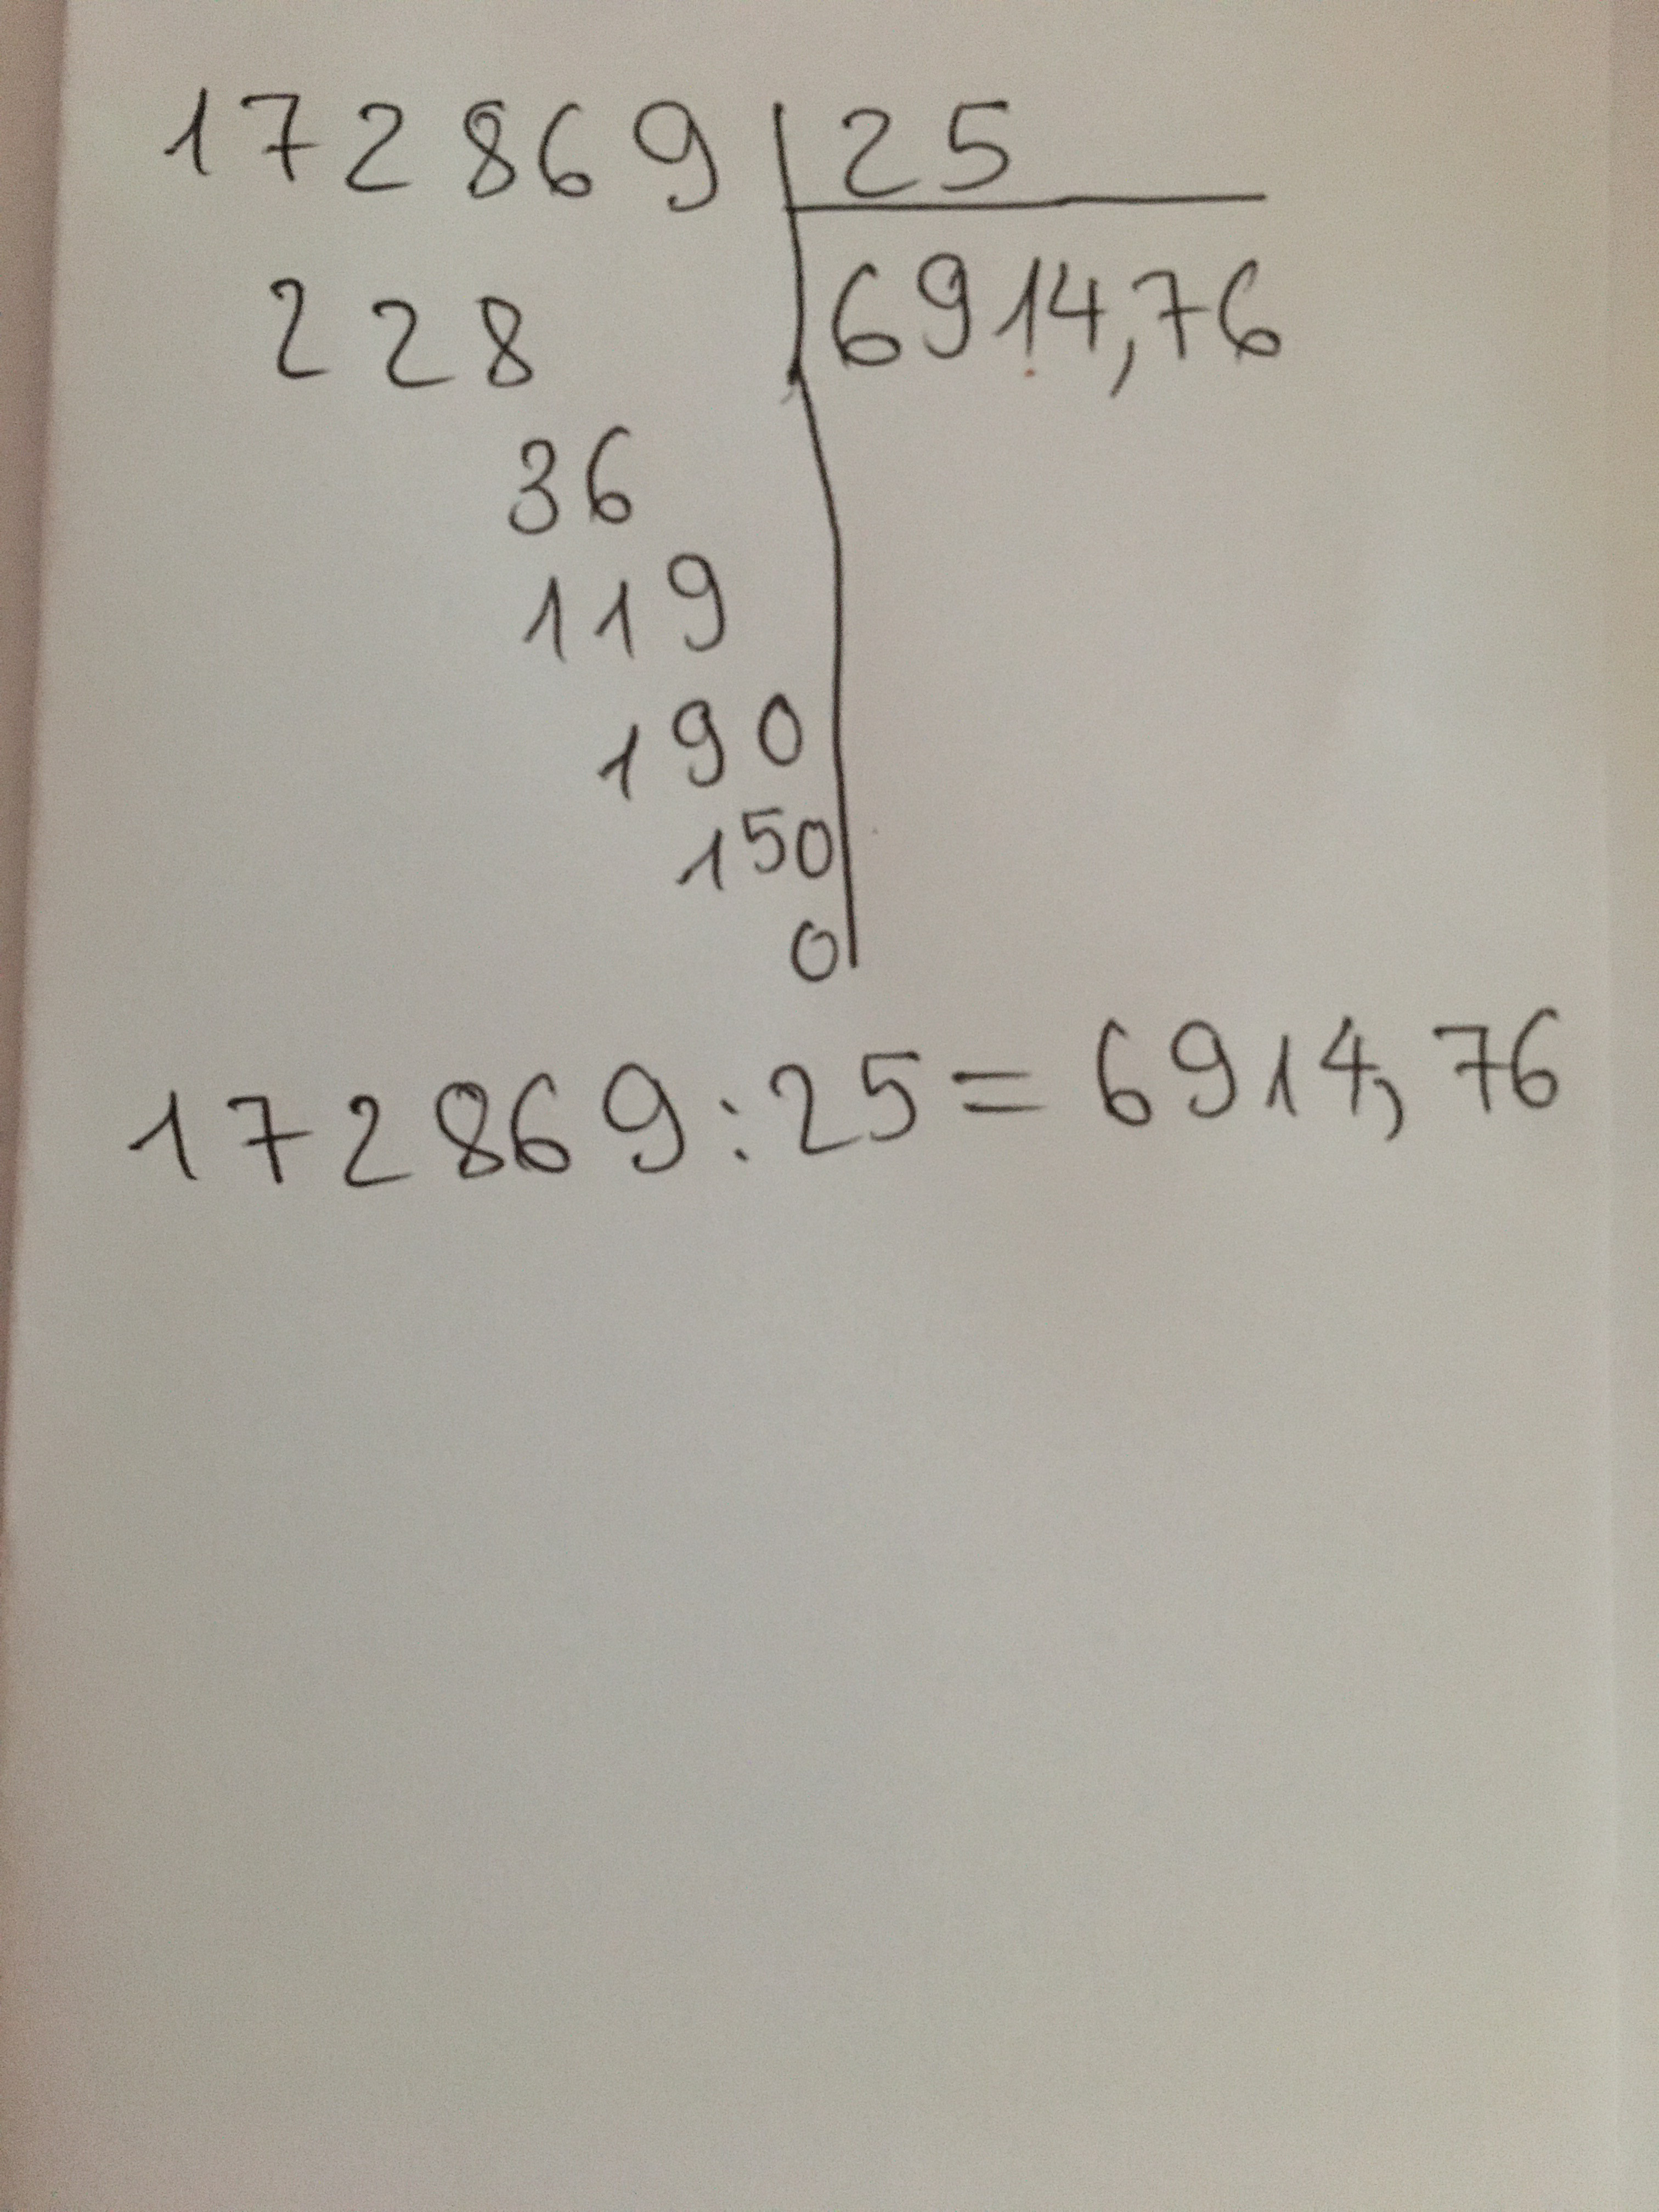 172869 25
228 6914,76
36
119
190
150
0
172869:25=6914,76